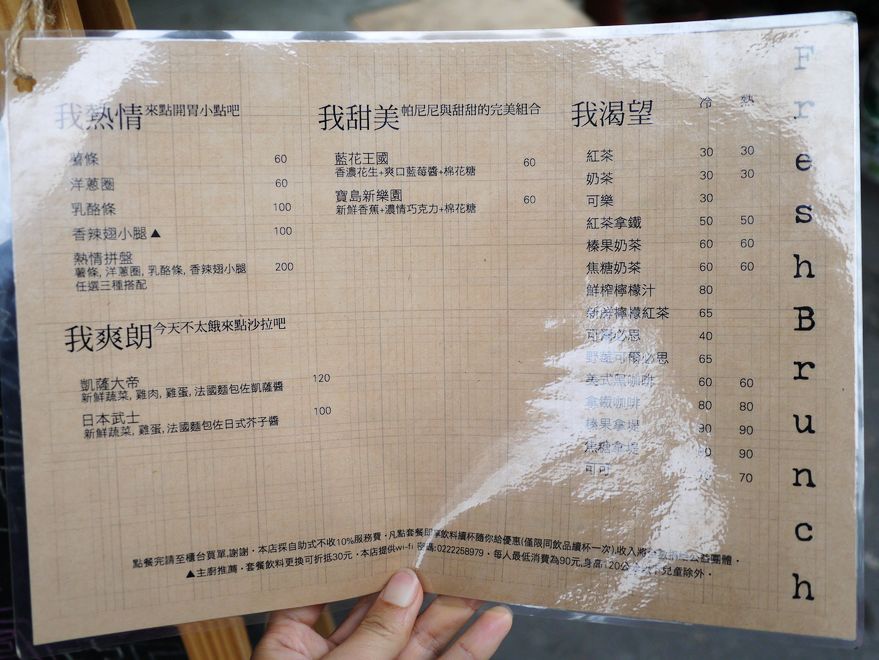 我熱情 來點開胃小點吧
薯條 60
洋蔥圈 60
乳酪條 100
香辣翅小腿▲ 100
熱情拼盤 200
薯條, 洋蔥圈, 乳酪條, 香辣翅小腿
任選三種搭配
我爽朗 今天不太餓來點沙拉吧
凱薩大帝 120
新鮮蔬菜, 雞肉, 雞蛋, 法國麵包佐凱薩醬
日本武士 100
新鮮蔬菜, 雞蛋, 法國麵包佐日式芥子醬
我甜美 帕尼尼與甜甜的完美組合
藍花王國 60
香濃花生+爽口藍莓醬+棉花糖
寶島新樂園 60
新鮮香蕉+濃情巧克力+棉花糖
我渴望 冷 熱
紅茶 30 30
奶茶 30 30
可樂 30
紅茶拿鐵 50 50
榛果奶茶 60 60
焦糖奶茶 60 60
鮮榨檸檬汁 80
新鮮檸檬紅茶 65
可爾必思 40
野莓可爾必思 65
美式黑咖啡 60 60
拿鐵咖啡 80 80
榛果拿堤 90 90
焦糖拿堤 90 90
可可 70
Fresh Brunch
點餐完請至櫃台買單,謝謝・本店採自助式不收10%服務費・凡點套餐即享飲料續杯隨你給優惠(僅限同飲品續杯一次),收入將 公益團體・
▲主廚推薦・套餐飲料更換可折抵30元・本店提供wi-fi 密碼:0222258979・每人最低消費為90元,身高120公分以下兒童除外・